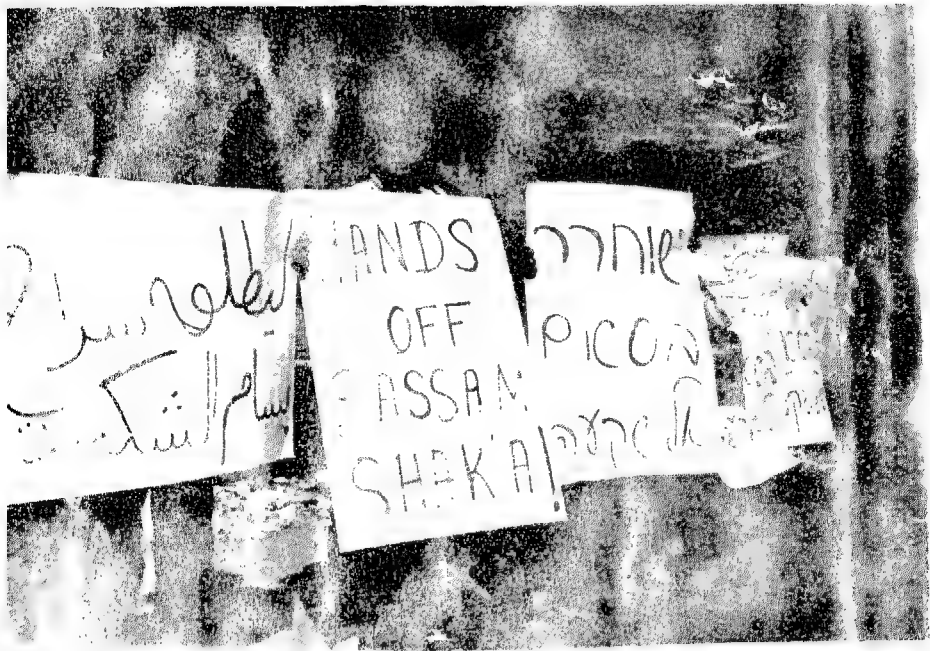 اطلقو سراح
بسام الشكعة
HANDS
OFF
BASSAM
SHAKA!
ישוחרר
בסאם
אל שקעה